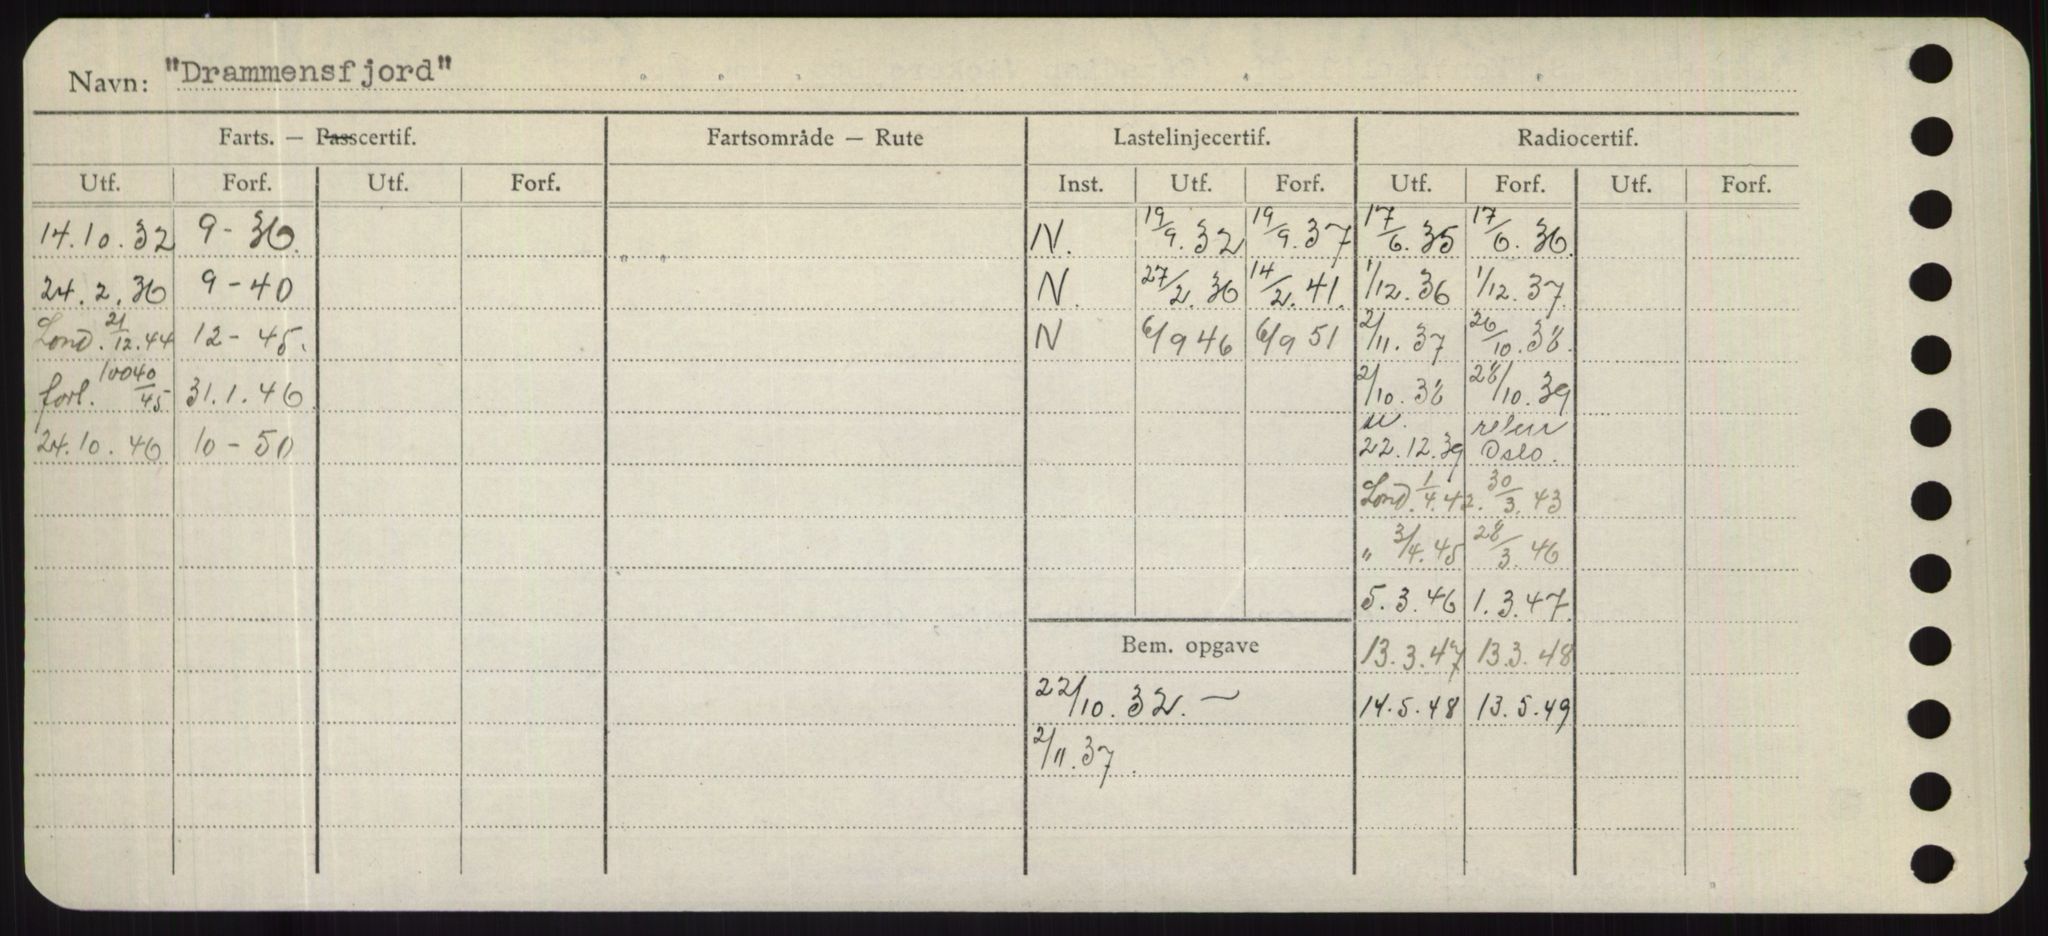 Navn: "Drammensfjord"
Farts. — Passcertif. Fartsområde — Rute Lastelinjecertif. Radiocertif.
Utf. Forf. Utf. Forf. Inst. Utf. Forf. Utf. Forf. Utf. Forf.
14.10.32 9-36. N. 19/9.32 19/9.37 17/6.35 17/6.36.
24.2.36 9-40 N. 27/2.36 14/2.41. 1/12.36 1/12.37.
Lond. 21/12.44 12-45. N 6/9 46 6/9 51 2/11.37 26/10.38.
forl. 10040/45 31.1.46 2/10.38 28/10.39
24.10.46 10-50 22.12.39 Oslo.
Lond. 1/4.42. 30/3.43
" 3/4.45 28/3.46
5.3.46 1.3.47
Bem. opgave 13.3.47 13.3.48
22/10.32. — 14.5.48 13.5.49
2/11.37.